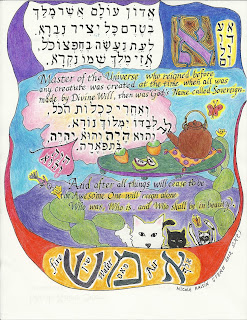 אדון עולם אשר מלך
בטרם כל יציר נברא
לעת נעשה בחפצו כל
אזי מלך שמו נקרא
Master of the Universe who reigned before
any creature was created at the time when all was
made by Divine Will, then was God's Name called Sovereign
ואחרי ככלות הכל
לבדו ימלוך נורא
והוא היה והוא הוה
והוא יהיה
בתפארה.
And after all things will cease to be
the Awesome One will reign alone
Who was, Who is, and Who shall be in beauty
fire
Water
Air
אמש